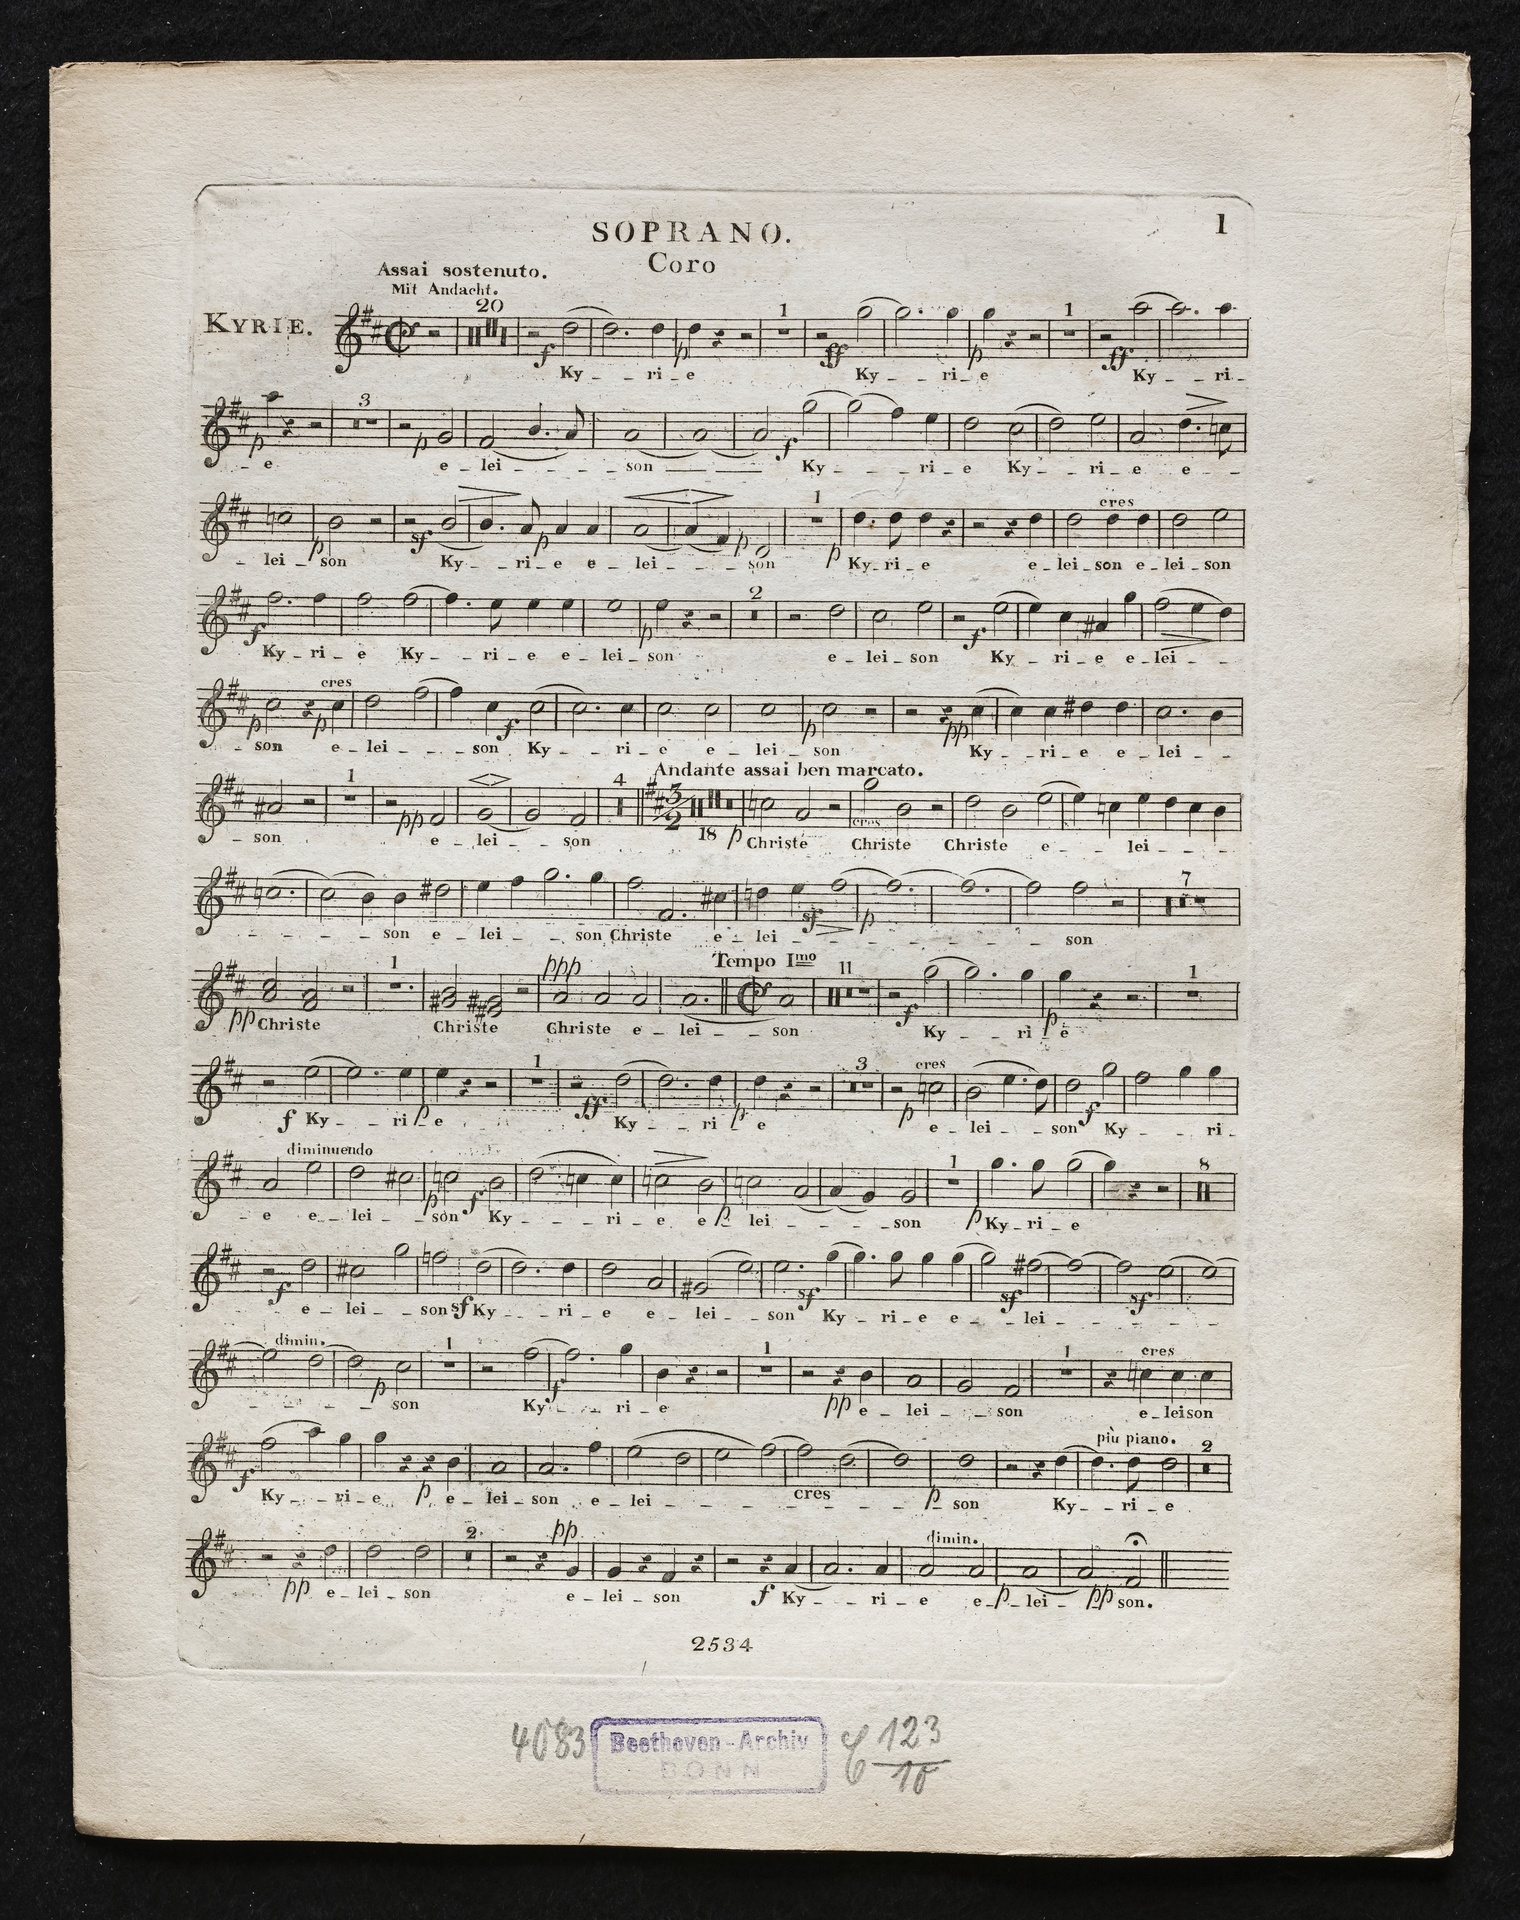 SOPRANO.
1
Coro
Assai sostenuto.
Mit Andacht.
KYRIE.
20 1 1
f p ff p ff
Ky _ _ ri _ e Ky _ _ ri _ e Ky _ _ ri _
3
p p f
_ e e _ lei _ _ _ _ son Ky _ _ _ ri _ e Ky _ _ ri _ e e _ _
1 cres
p sf p p p
_ lei _ son Ky _ _ ri _ e e _ lei _ _ _ son Ky _ ri _ e e _ lei _ son e _ lei _ son
2
f p f
Ky _ ri _ e Ky _ _ ri _ e e _ lei _ son e _ lei _ son Ky _ _ ri _ e e _ lei _ _
cres
p p f p pp
_ son e _ lei _ _ _ son Ky _ _ ri _ e e _ lei _ son Ky _ _ ri _ e e _ lei _ _
Andante assai ben marcato.
1 4 3/2 18
pp p cres
son e _ lei _ _ son Christe Christe Christe e _ _ _ lei _ _ _
7
sf p
_ _ _ _ son e _ lei _ _ son Christe e _ lei _ _ _ _ _ _ _ son
ppp Tempo Imo
1 11 1
pp f p
Christe Christe Christe e _ lei _ _ son Ky _ _ ri _ e
1 3 cres
f p ff p p f
Ky _ _ ri _ e Ky _ _ ri _ e e _ lei _ _ son Ky _ _ ri _
diminuendo 1 8
p f p p
_ e e _ lei _ _ son Ky _ _ _ ri _ e e _ lei _ _ _ son Ky _ ri _ e
f sf sf sf sf
e _ lei _ _ son Ky _ _ ri _ e e _ lei _ _ son Ky _ ri _ e e _ _ lei _ _ _ _
dimin. 1 1 1 cres
p f pp
_ _ _ _ son Ky _ _ ri _ e e _ lei _ _ son e _ leison
più piano. 2
f p cres p
Ky _ _ ri _ e e _ lei _ son e _ lei _ _ _ _ _ _ _ son Ky _ _ ri _ e
2 pp dimin.
pp f p pp
e _ lei _ son e _ lei _ son Ky _ _ ri _ e e _ lei _ son.
2534
4083
Beethoven-Archiv
BONN
C 123/10